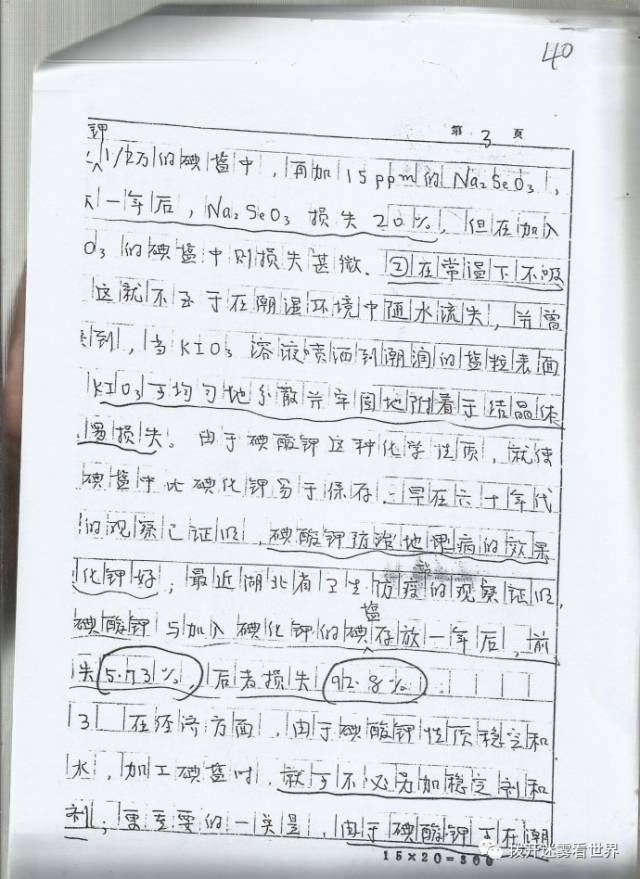 40
第 3 页
钾
1/2万的碘盐中，再加15ppm的Na₂SeO₃，
一年后，Na₂SeO₃损失20%，但在加入
O₃的碘盐中则损失甚微.②在常温下不吸
这就不至于在潮湿环境中随水流失，并曾
到，当KIO₃溶液喷洒到潮润的盐粒表面
KIO₃可均匀地分散并牢固地附着于结晶体
易损失。由于碘酸钾这种化学性质，就使
碘盐中比碘化钾易于保存.早在六十年代
的观察已证明，碘酸钾防治地甲病的效果
化钾好；最近湖北省卫生防疫的观察证明，
碘酸钾与加入碘化钾的碘盐存放一年后，前
失5.73%，后者损失92.8%.
3 在经济方面，由于碘酸钾性质稳定和
水，加工碘盐时，就可不必另加稳定剂和
剂；更重要的一关是，由于碘酸钾可在潮
15×20=300
拨开迷雾看世界